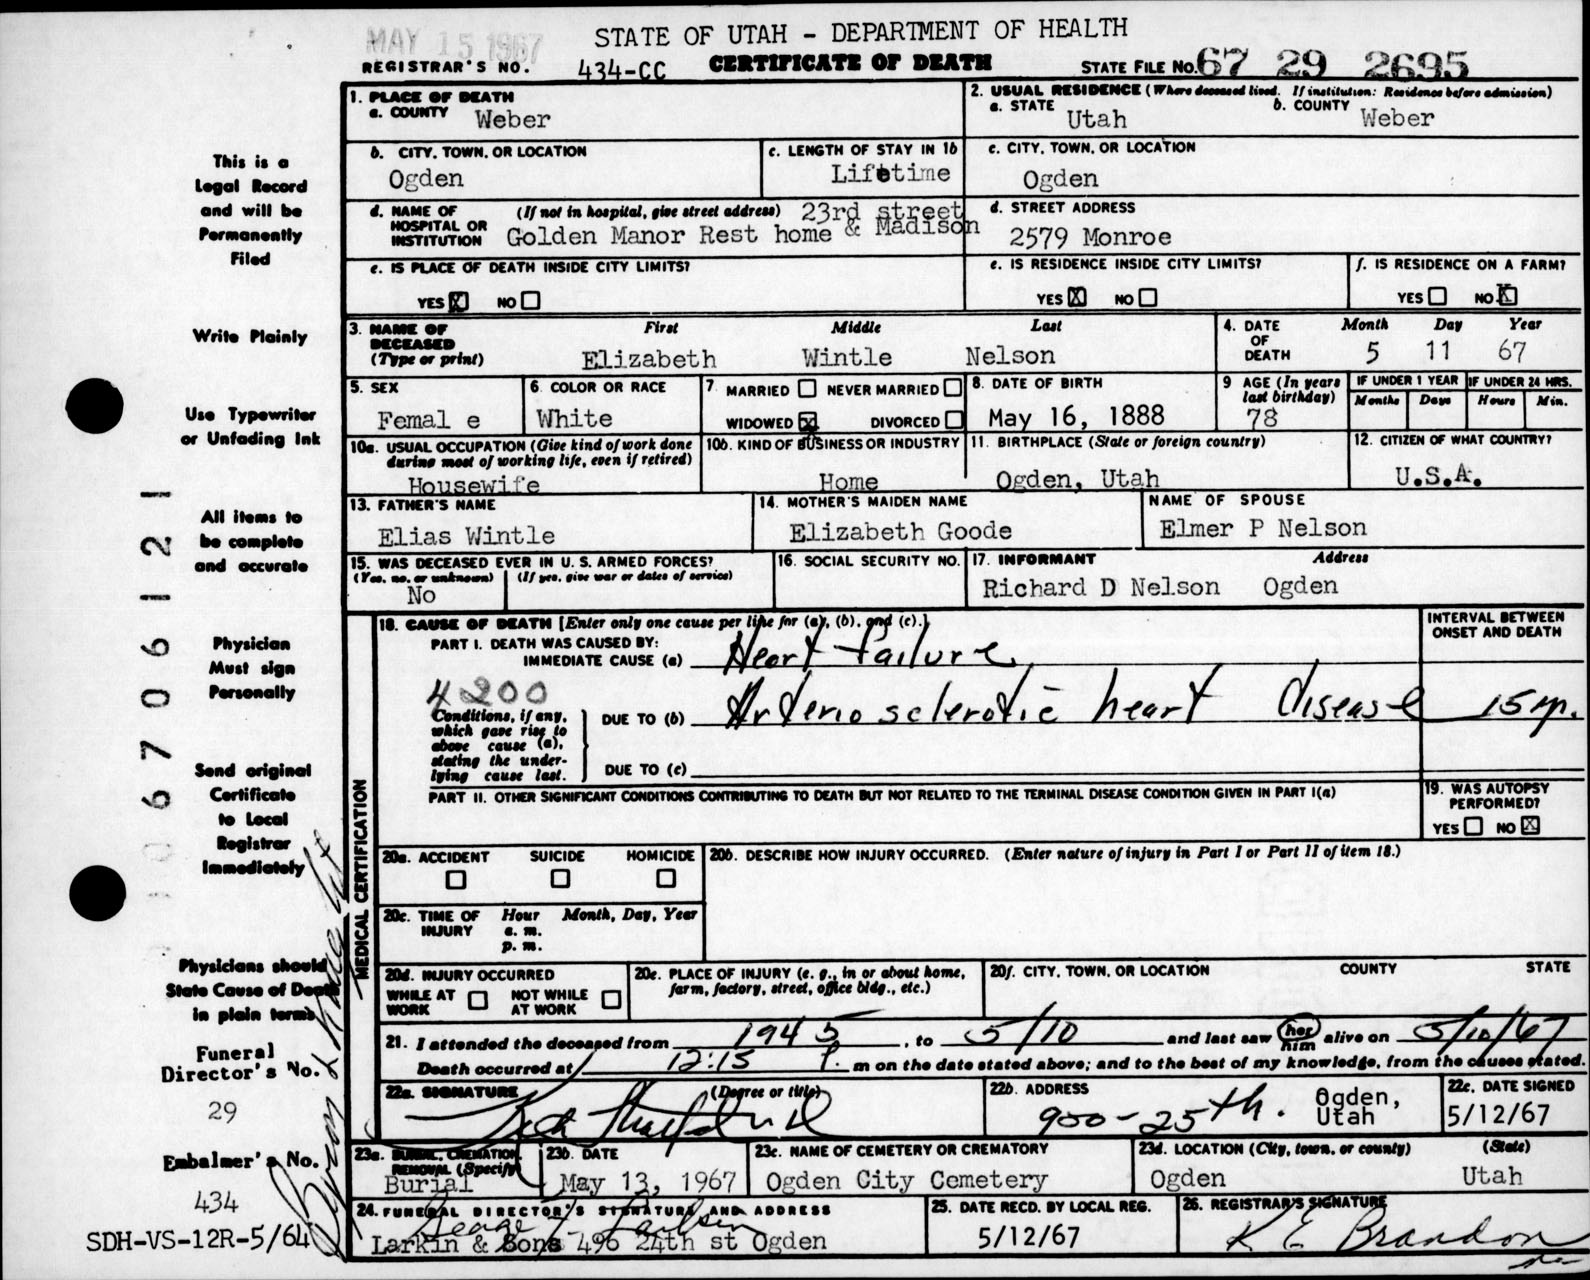 MAY 15 1967
STATE OF UTAH - DEPARTMENT OF HEALTH
REGISTRAR'S NO. 434-CC CERTIFICATE OF DEATH STATE FILE NO. 67 29 2695
1. PLACE OF DEATH
a. COUNTY Weber
2. USUAL RESIDENCE (Where deceased lived. If institution: Residence before admission)
a. STATE Utah b. COUNTY Weber
b. CITY, TOWN, OR LOCATION Ogden
c. LENGTH OF STAY IN 1b Lifetime
c. CITY, TOWN, OR LOCATION Ogden
d. NAME OF HOSPITAL OR INSTITUTION (If not in hospital, give street address) 23rd street
Golden Manor Rest home & Madison
d. STREET ADDRESS
2579 Monroe
e. IS PLACE OF DEATH INSIDE CITY LIMITS?
YES X NO
e. IS RESIDENCE INSIDE CITY LIMITS?
YES X NO
f. IS RESIDENCE ON A FARM?
YES NO X
3. NAME OF DECEASED (Type or print) First Middle Last
Elizabeth Wintle Nelson
4. DATE OF DEATH Month Day Year
5 11 67
5. SEX
Femal e
6. COLOR OR RACE
White
7 MARRIED NEVER MARRIED
WIDOWED X DIVORCED
8. DATE OF BIRTH
May 16, 1888
9 AGE (In years last birthday)
78
IF UNDER 1 YEAR IF UNDER 24 HRS.
Months Days Hours Min.
10a. USUAL OCCUPATION (Give kind of work done during most of working life, even if retired)
Housewife
10b. KIND OF BUSINESS OR INDUSTRY
Home
11. BIRTHPLACE (State or foreign country)
Ogden, Utah
12. CITIZEN OF WHAT COUNTRY?
U.S.A.
13. FATHER'S NAME
Elias Wintle
14. MOTHER'S MAIDEN NAME
Elizabeth Goode
NAME OF SPOUSE
Elmer P Nelson
15. WAS DECEASED EVER IN U. S. ARMED FORCES?
(Yes, no, or unknown) (If yes, give war or dates of service)
No
16. SOCIAL SECURITY NO.
17. INFORMANT Address
Richard D Nelson Ogden
MEDICAL CERTIFICATION
18. CAUSE OF DEATH [Enter only one cause per line for (a), (b), and (c).]
PART I. DEATH WAS CAUSED BY:
IMMEDIATE CAUSE (a) Heart failure
INTERVAL BETWEEN ONSET AND DEATH
4200
Conditions, if any, which gave rise to above cause (a), stating the underlying cause last.
DUE TO (b) Arteriosclerotic heart disease 15 yr.
DUE TO (c)
PART II. OTHER SIGNIFICANT CONDITIONS CONTRIBUTING TO DEATH BUT NOT RELATED TO THE TERMINAL DISEASE CONDITION GIVEN IN PART I(a)
19. WAS AUTOPSY PERFORMED?
YES NO X
20a. ACCIDENT SUICIDE HOMICIDE
20b. DESCRIBE HOW INJURY OCCURRED. (Enter nature of injury in Part I or Part II of item 18.)
20c. TIME OF INJURY Hour Month, Day, Year
a. m.
p. m.
20d. INJURY OCCURRED
WHILE AT WORK NOT WHILE AT WORK
20e. PLACE OF INJURY (e. g., in or about home, farm, factory, street, office bldg., etc.)
20f. CITY, TOWN, OR LOCATION COUNTY STATE
21. I attended the deceased from 1945, to 5/10 and last saw her him alive on 5/10/67
Death occurred at 12:15 P. m on the date stated above; and to the best of my knowledge, from the causes stated.
22a. SIGNATURE (Degree or title)
22b. ADDRESS
900-25th. Ogden, Utah
22c. DATE SIGNED
5/12/67
23a. BURIAL, CREMATION, REMOVAL (Specify)
Burial
23b. DATE
May 13, 1967
23c. NAME OF CEMETERY OR CREMATORY
Ogden City Cemetery
23d. LOCATION (City, town, or county) (State)
Ogden Utah
24. FUNERAL DIRECTOR'S SIGNATURE AND ADDRESS
Larkin & Sons 496 24th st Ogden
25. DATE RECD. BY LOCAL REG.
5/12/67
26. REGISTRAR'S SIGNATURE
K E Brandon
This is a
Legal Record
and will be
Permanently
Filed
Write Plainly
Use Typewriter
or Unfading Ink
All items to
be complete
and accurate
Physician
Must sign
Personally
Send original
Certificate
to Local
Registrar
Immediately
Physicians should
State Cause of Death
in plain terms
Funeral
Director's No.
29
Embalmer's No.
434
SDH-VS-12R-5/64